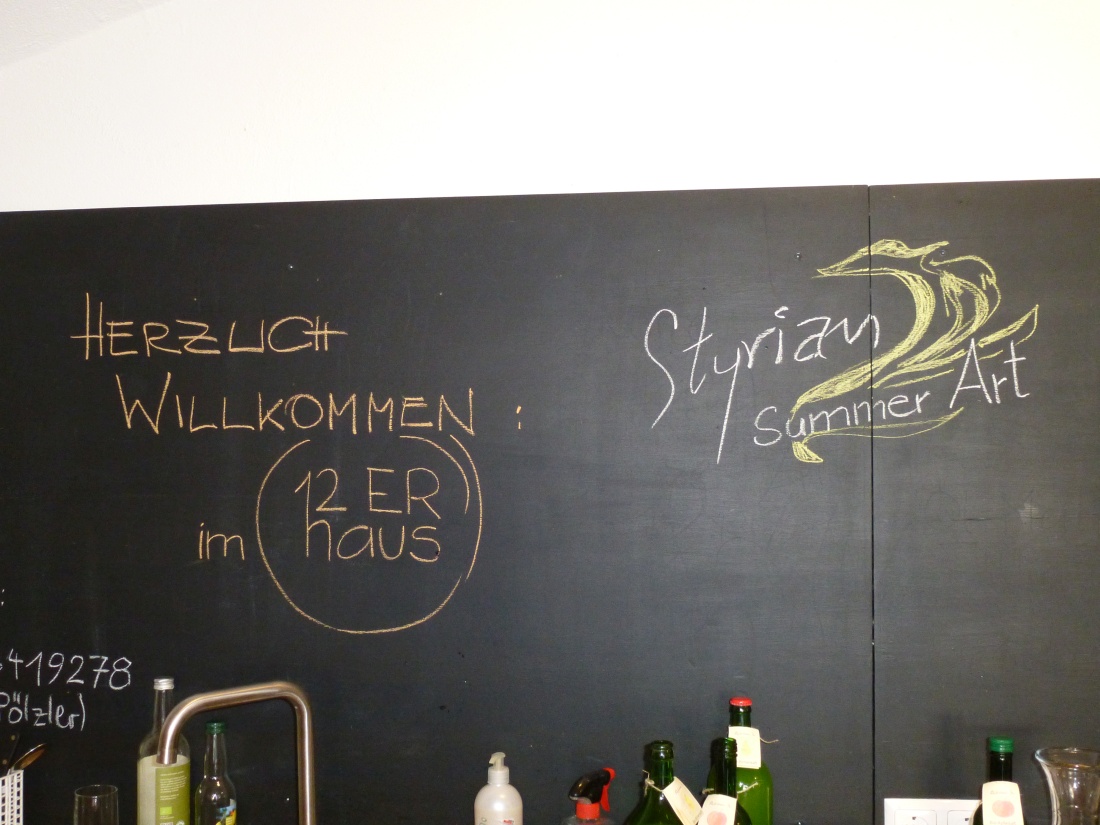 HERZLICH
WILLKOMMEN :
im 12ER
haus
Styrian
Summer Art
419278
Pölzler)